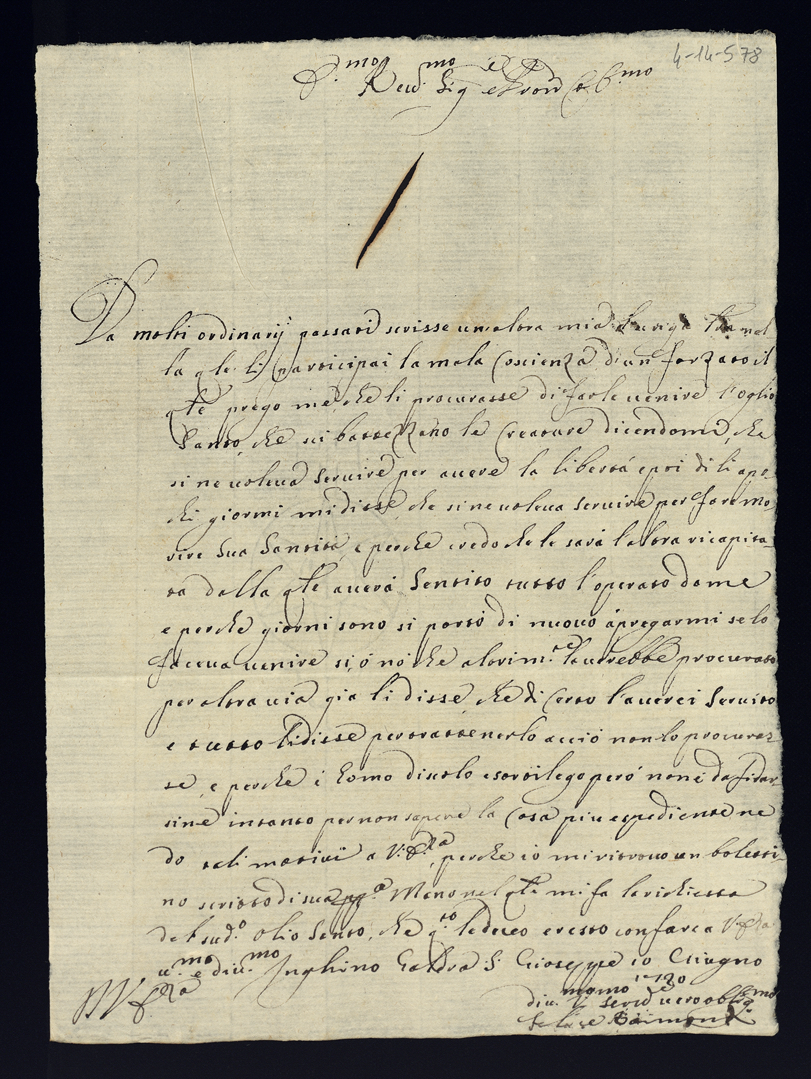 4-14-578
Da molti ordinarij passati scrisse un altra mia
la qle li participai la mala Coscienza d'un forzato il
qle pregò me, che li procurasse di farle uenire l'oglio
Santo, che si battezzano le Creature dicendomi, che
si ne uoleua seruire per auere la libertá e poi di li a po-
chi giorni mi disse, che si ne uoleua seruire per fare mo-
rire Sua Santità, e perche credo che le sará l'altra ricapita-
ta dalla qle auerá Sentito tutto l'operato da me
e perche giorni sono si portó di nuouo á pregarmi se lo
faceua uenire si, ó nò che altrim.te l'auerebbe procurato
per altra uia gia li disse, che di Certo l'auerei Seruito
e tutto li disse per trattenerlo acció non lo procuras-
se, e perche é homo diuolo e sortilego peró non é da fidar-
sine intanto per non sapere la Cosa piu espediente ne
do tali motiui a V. , perche io mi ritrouo un boletti-
no scritto di sua Mano nel qle mi fa la richiesta
del sud.o olio Santo, che q.to le deuo e resto con far a V.
u.mo e diu.mo Inchino Galera S. Gioseppe 10 Giugno
1730
diu.mo seru.e uero oblig.mo
Felice Raimondi